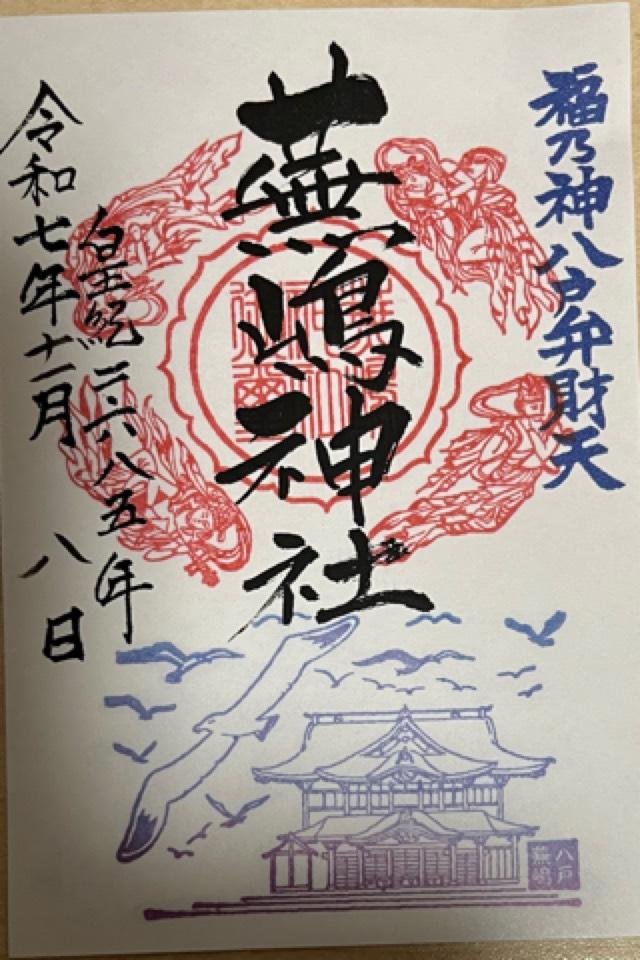 福乃神八戸弁財天
蕪嶋神社
皇紀二六八五年
令和七年十一月 八日
八戸
蕪嶋